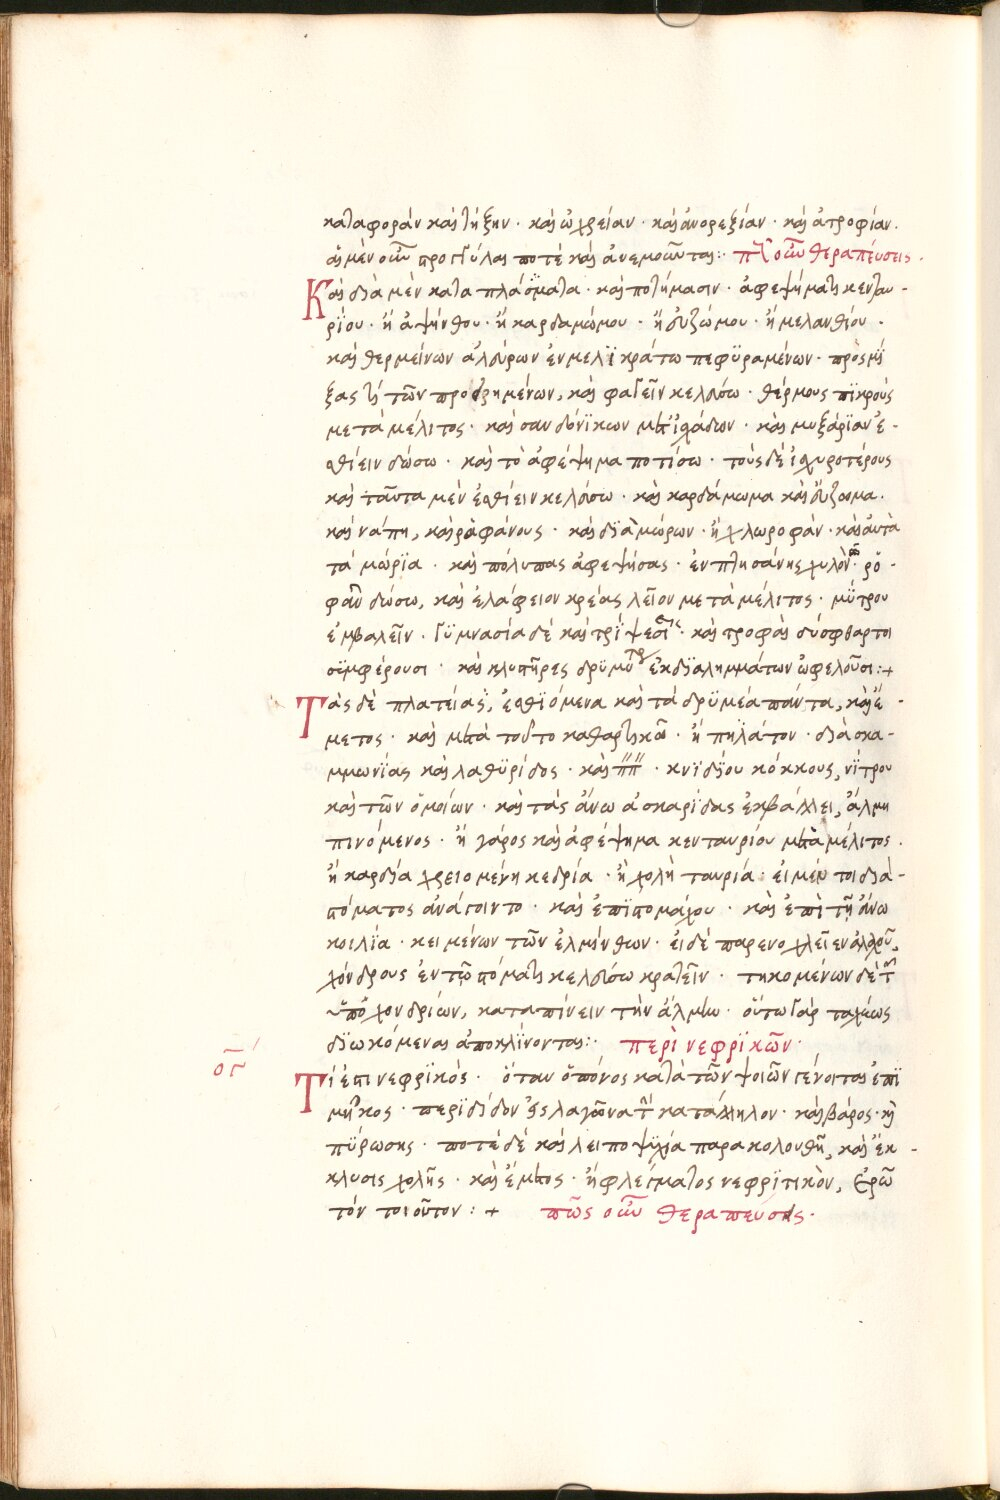 καταφοράν καὶ λῆξην · καὶ ὠχρείαν · καὶ ἀνορεξίαν · καὶ ἀτροφίαν.
αἱ μὲν οὖν στρογγύλαι ποτὲ καὶ ἀνεμοῦνται:· πῶς οὖν θεραπεύσεις.
Καὶ διὰ μὲν καταπλάσματα · καὶ ποτήμασιν · ἀφεψήματι κενταυ-
ρΐου · ἢ ἀψήνθου · ἢ καρδαμώμου · ἢ εὐζώμου · ἢ μελανθίου ·
καὶ θερμείνων ἀλεύρων ἐν μελϊκράτω πεφϋραμένων · πρὸς μΐ
ξας τῆ τῶν προειρημένων, καὶ φαγεῖν κελεύσω · θέρμους πϊκροὺς
μετὰ μέλιτος · καὶ σανδόνϊκων μετ' ἰσχάδων · καὶ μυξάρϊαν ἐ-
σθίειν δώσω · καὶ τὸ ἀφέψημα ποτίσω · τοὺς δὲ ἰσχυροτέρους
καὶ ταῦτα μὲν ἐσθίειν κελεύσω · καὶ καρδάμωμα καὶ εὔζωμα ·
καὶ νάπη, καὶ ῥαφάνους · καὶ δϊὰ μώρων · ἢ χλωροφὰν · καὶ αὐτὰ
τά μώρϊα · καὶ πόλυπας ἀφεψήσας · ἐν πτησάνης χυλὸν · ῥο-
φᾶν δώσω, καὶ ἐλάφειον κρέας λεῖον μετὰ μέλιτος · μΰτρου
ἐμβαλεῖν · γϋμνασία δὲ καὶ τρΐψεσι · καὶ τροφαὶ δύσφθαρτοι
σϋμφέρουσι · καὶ κλυστῆρες δρϋμύτεροι ἐκ δϊαλημμάτων ὠφελοῦσι:+
Τὰς δὲ πλατείας, ἐσθϊόμενα καὶ τὰ δρϋμέα πάντα, καὶ ἔ-
μετος · καὶ μετὰ τοῦτο καθαρτικᾶ · ἢ πηλάτον · διὰ σκα-
μμωνΐας καὶ λαθϋρίδος · καὶ · κνϊδΐου κόκκους, νΐτρου
καὶ τῶν ὁμοίων · καὶ τὰς ἄνω ἀσκαρίδας ἐκβάλλει, ἅλμη
πινόμενος · ἢ γάρος καὶ ἀφέψημα κενταυρίου μετὰ μέλιτος.
ἢ καρδία χρειομένη κεδρία · ἢ χολὴ ταυρία · εἰ μέν τοι διὰ-
στόματος ἀνάγοιντο · καὶ ἐπϊστομάχου · καὶ ἐπὶ τῇ ἄνω
κοιλΐα · κειμένων τῶν ἑλμίνθων · εἰ δὲ παρενοχλεῖεν
χόνδρους ἐν τῷ στόματι κελεύσω κρατεῖν · τηκομένων δὲ τ̃
ὑποχονδρίων, καταπίνειν τὴν ἅλμην · οὕτω γὰρ ταχέως
δϊωκόμεναι ἀποκλΐνονται:· περὶ νεφρϊκῶν ·
ογ̄
Τί ἐστι νεφρϊκὸς · ὅταν ὁ πόνος κατὰ τῶν ψοιῶν γένοιται ἐπϊ
μῆκος · περϊδίδον εἰς λαγῶνα τ̃ κατάλληλον · καὶ βάρος · κὴ
πΰρωσης · ποτὲ δὲ καὶ λειποψϋχία παρακολουθῆ, καὶ ἔκ-
κλυσις χολῆς · καὶ ἔμετος · ἢ φλέγματος νεφρϊτικὸν, ἐρῶ
τὸν τοιοῦτον : + πῶς οὖν θεραπεύσης ·